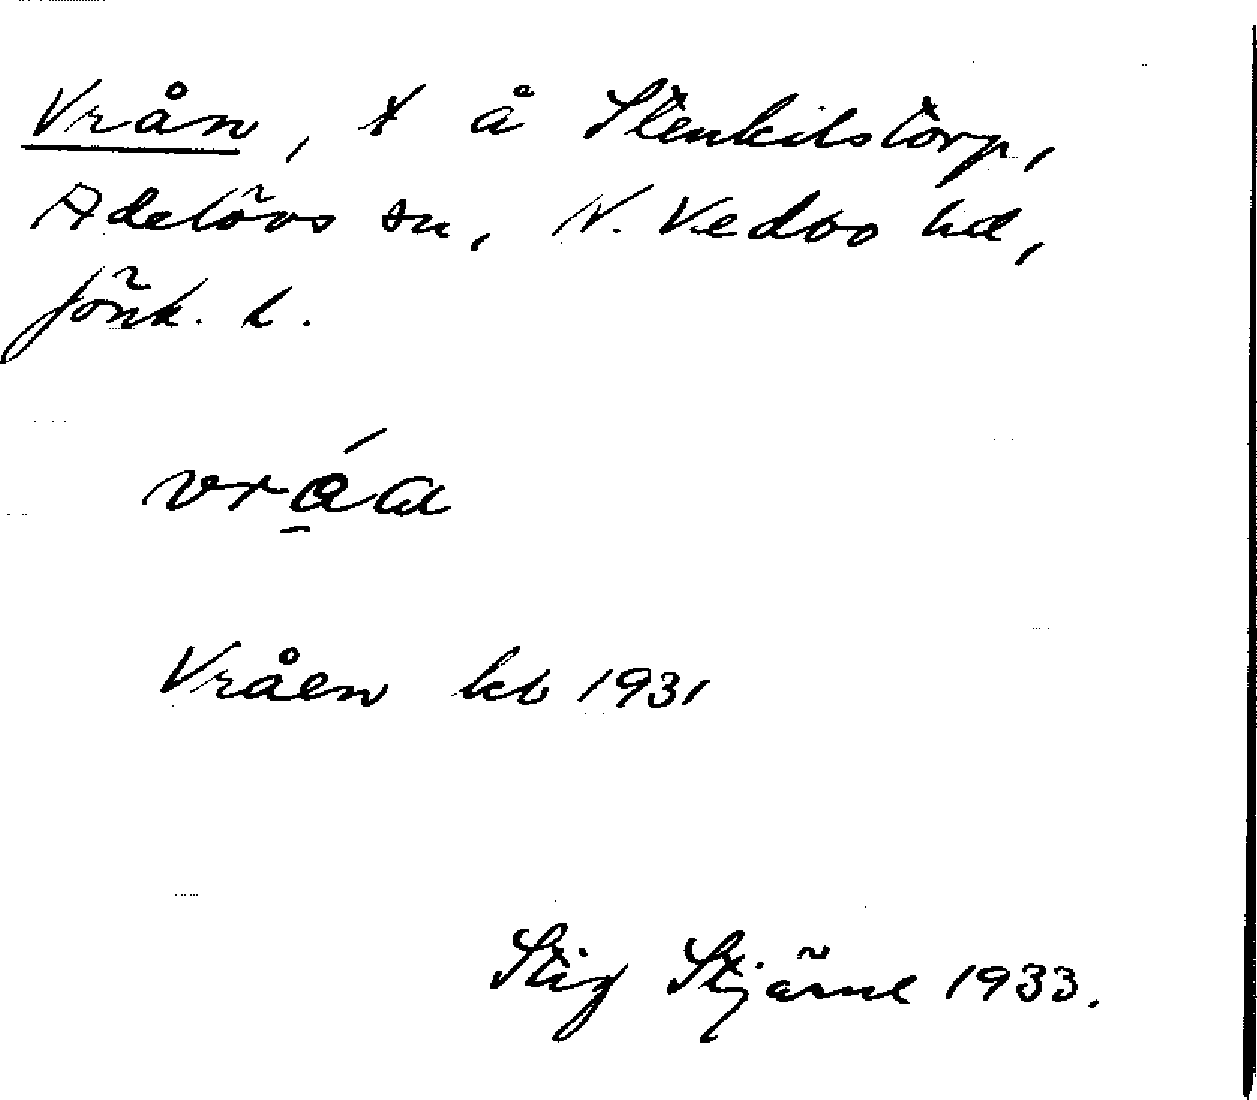 Vrån, t å Stenkilstorp,
Adelövs sn, N. Vedbo hd,
Jönk. l.
vrá̱a
Vråen kb 1931
Stig Stjärne 1933.